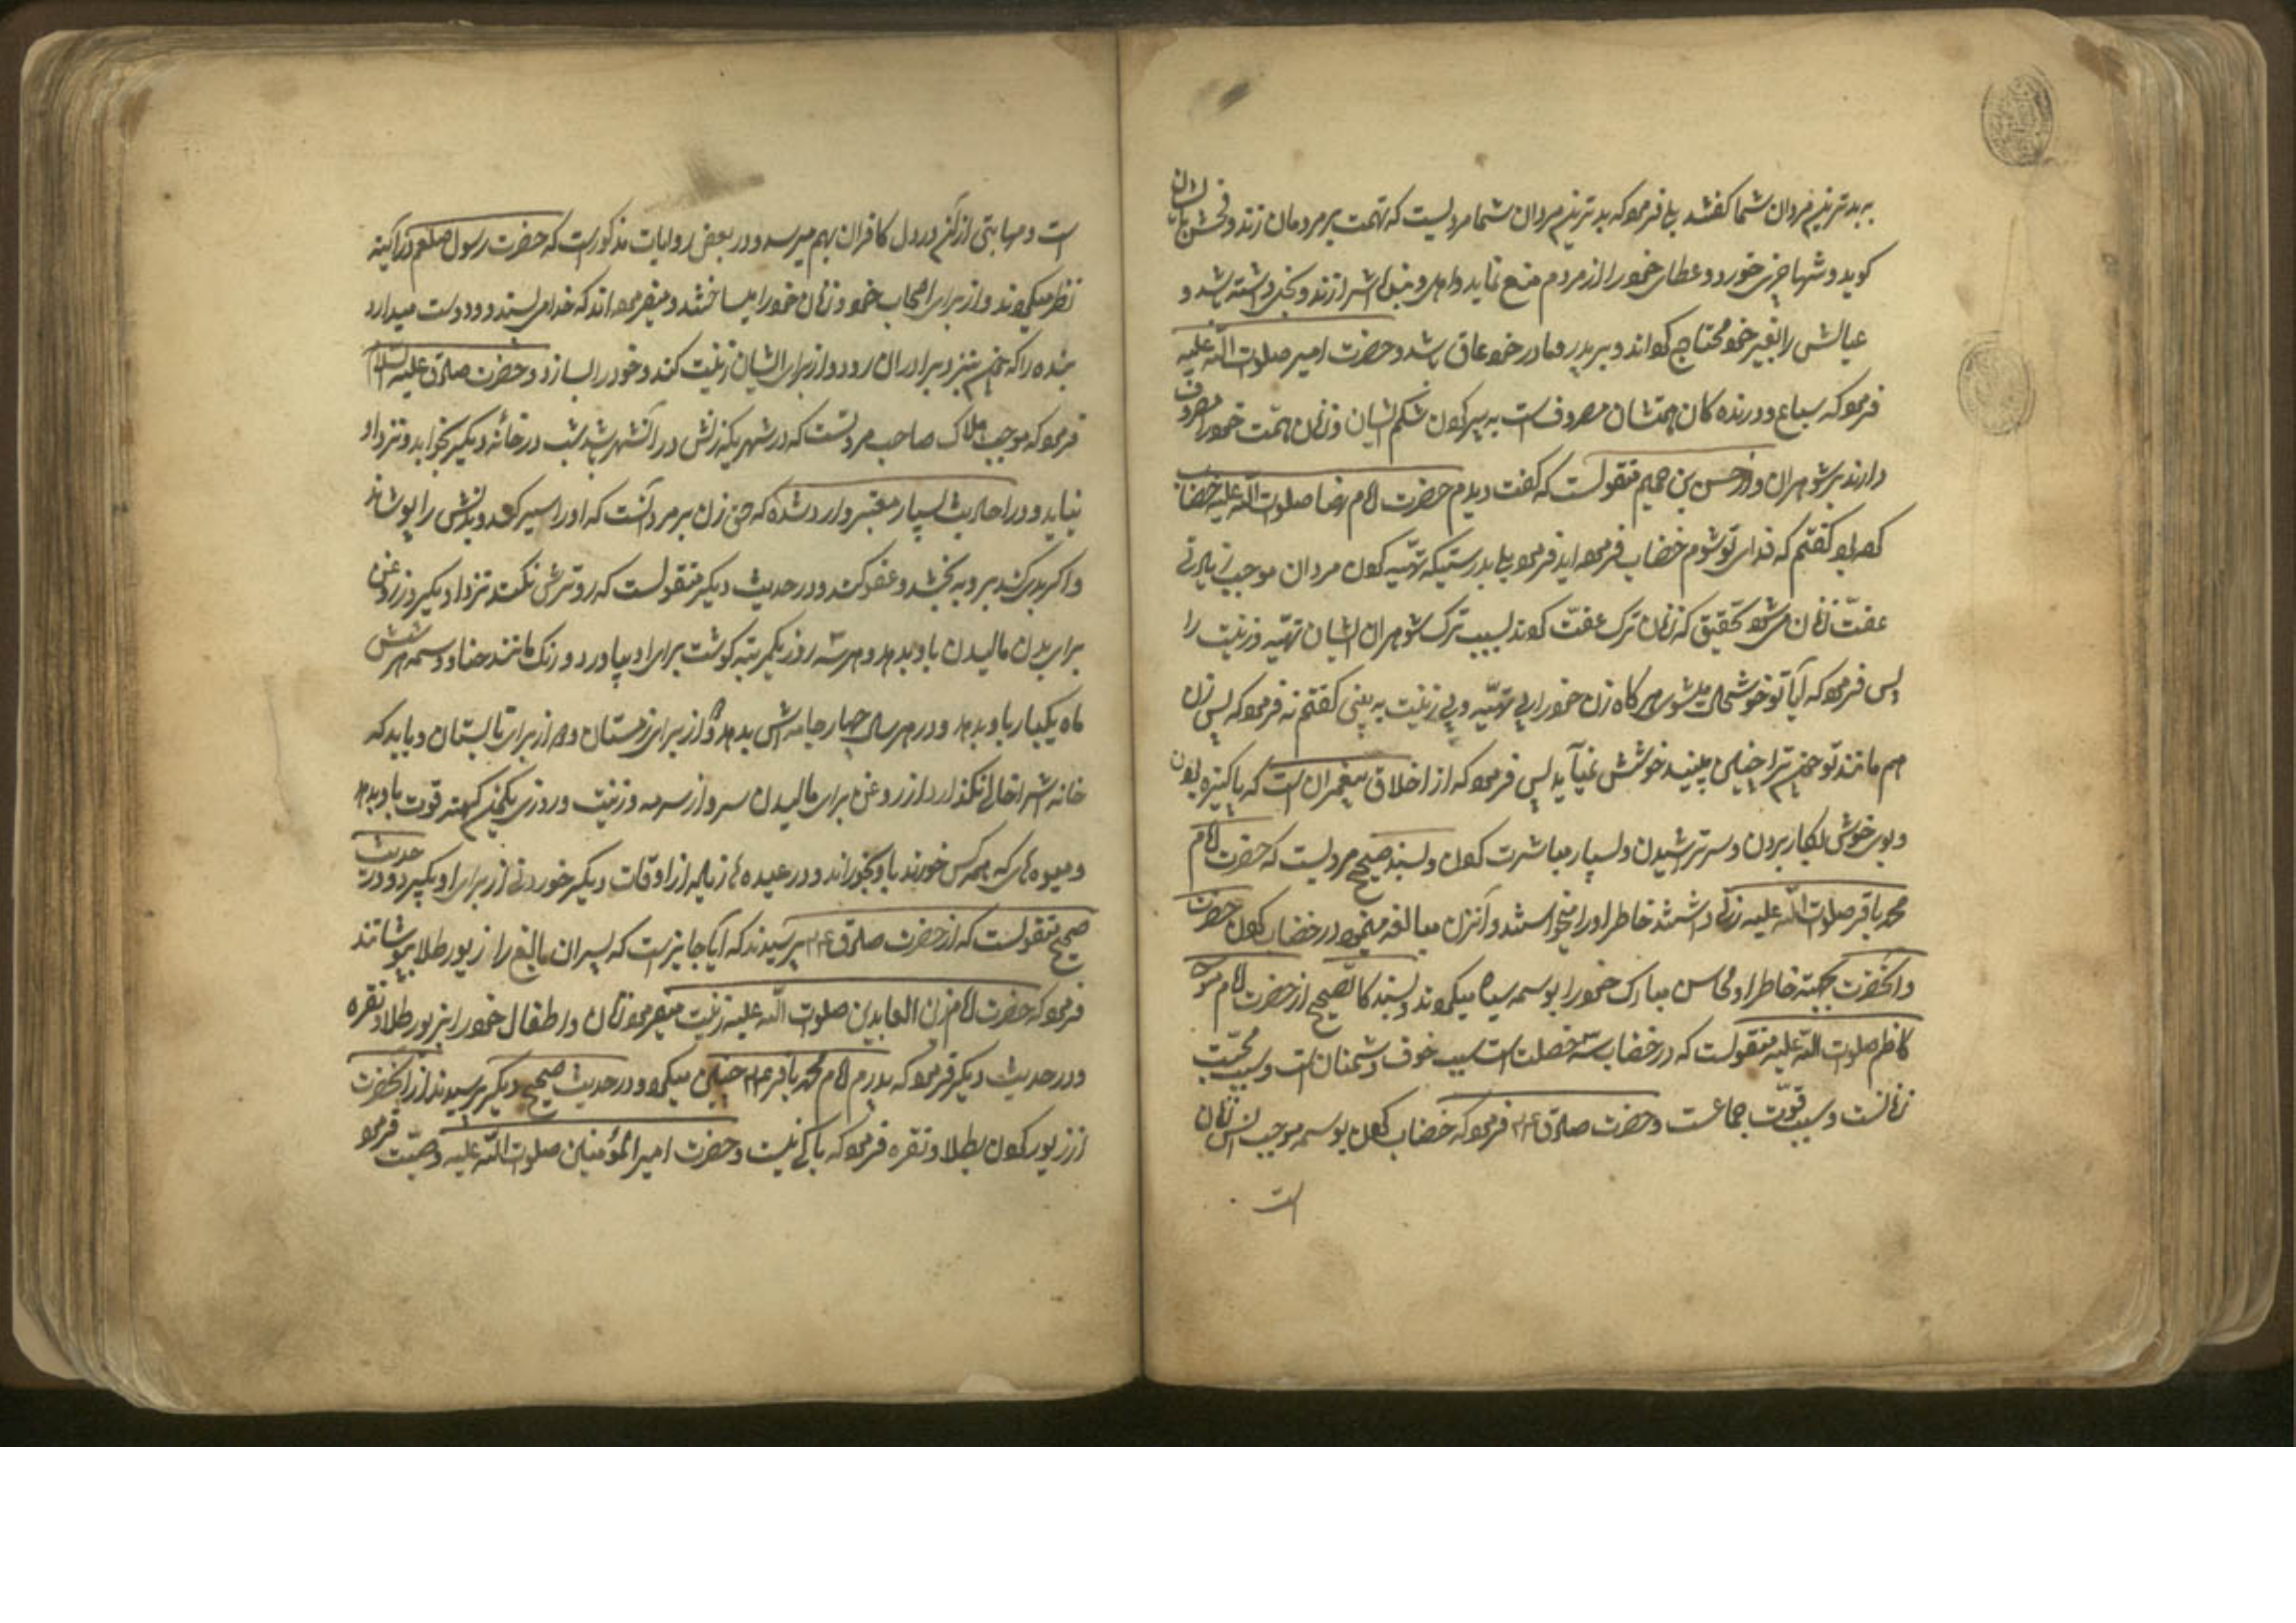 به بدترین مردان شما گفتند بلی فرمود که بدترین مردان شما مردیست که تهمت بر مردمان زند و فحش بایشان
گوید و تنها چیزی خورد و عطای خود را از مردم منع نماید و اهل و بنده اش را زند و بخیل باشد و
عیالش را بغیر خود محتاج گرداند و بر پدر و مادر خود عاق باشد و حضرت امیر صلوات الله علیه
فرمود که سباع و درنده کان همتشان مصروفست به سیر کردن شکم ایشان و زنان همت خود را مصروف
دارند بر شوهران و از حسن بن جهم منقولست که گفت دیدم حضرت امام رضا صلوات الله علیه خضاب
کرده بود گفتم که فدای تو شوم خضاب فرموده اید فرمود بلی بدرستیکه تهیه کردن مردان موجب زیادتی
عفت زنان میشود بتحقیق که زنان ترک عفت کردند بسبب ترک شوهران ایشان تهیه و زینت را
پس فرمود که آیا تو خوشحال میشوی هرگاه زن خود را بی تهیه و بی زینت به بینی گفتم نه فرمود که پس زن
هم مانند تو چون ترا چنین بیند خوشش نمیآید پس فرمود که از اخلاق پیغمبران است که پاکیزه بودن
و بوی خوش بکار بردن و سر تراشیدن و بسیار مباشرت کردن و بسند صحیح مرویست که حضرت امام
محمد باقر صلوات الله علیه زنی داشتند خاطر او را میخواستند و آنزن مبالغه مینمود در خضاب کردن حضرت
و آنحضرت بجهة خاطر او محاسن مبارک خود را بوسمه سیاه میکردند و بسند کالصحیح از حضرت امام موسی
کاظم صلوات الله علیه منقولست که در خضاب سه خصلت است سبب خوف دشمنان است و سبب محبت
زنانست و سبب قوت جماعست و حضرت صادق ع م فرمود که خضاب کردن بوسمه موجب انس زنان
است
است و مهابتی از آن در دل کافران بهم میرسد و در بعض روایات مذکور است که حضرت رسول صلعم در آینه
نظر میکردند و از برای اصحاب خود و زنان خود را میساختند و میفرموده اند که خدا می پسندد و دوست میدارد
بنده را که چون بنزد برادران رود از برای ایشان زینت کند و خود را بسازد و حضرت صادق علیه السلام
فرمود که موجب هلاک صاحب مروتست که در شهریکه زنش در آنشهر باشد شب در خانه دیگر بخوابد و نزد او
نیاید و در احادیث بسیار معتبر وارد شده که حق زن بر مرد آنست که او را سیر کند و بدنش را بپوشاند
و اگر بدی کند بر وی به بخشد و عفو کند و در حدیث دیگر منقولست که رو ترش نکند نزد او دیگر روز روغن
برای بدن مالیدن باو بدهد و هر سه روز یکمرتبه گوشت برای او بیاورد و رنک مانند حنا و وسمه هر شش
ماه یکبار باو بدهد و در هر سال چهار جامه اش بدهد دو از برای زمستان و دو از برای تابستان و باید که
خانه اش را خالی نگذارد از روغن برای مالیدن سر و از سرکه و زیت و روزی یکچارک قوت باو بدهد
و میوه های که همه کس خورند باو بخوراند و در عیدها زیاده از اوقات دیگر خوردنی از برای او بگیرد و در حدیث
صحیح منقولست که از حضرت صادق ع م پرسیدند که آیا جایز است که پسران نابالغ را زیور طلا بپوشانند
فرمود که حضرت امام زین العابدین صلوات الله علیه زینت میفرمود زنان و اطفال خود را بزیور طلا و نقره
و در حدیث دیگر فرمود که پدرم امام محمد باقر ع م چنین میکرد و در حدیث صحیح دیگر پرسیدند از آنحضرت
از زیور کردن بطلا و نقره فرمود که باکی نیست و حضرت امیر المؤمنین صلوات الله علیه وصیت فرمود